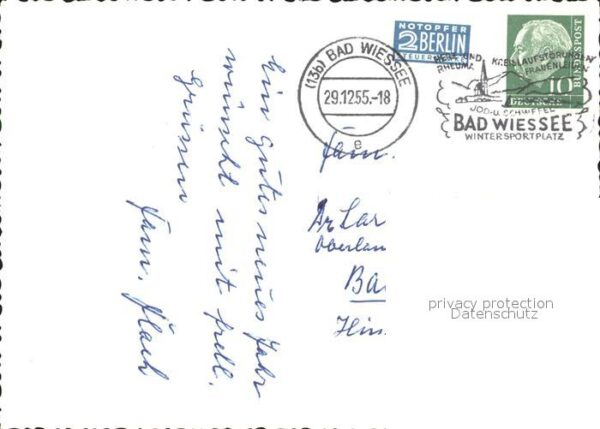 Ein gutes neues Jahr
wünscht mit frdl.
Grüssen
Fam. Flach
NOTOPFER
2 BERLIN
STEUERMARKE
(13b) BAD WIESSEE
29.12.55.-18
e
HERZ- UND KREISLAUFSTÖRUNGEN
RHEUMA FRAUENLEIDEN
JOD- u. SCHWEFEL
BAD WIESSEE
WINTERSPORTPLATZ
10
DEUTSCHE
BUNDESPOST
Fam.
Dr Lar
Oberlan
Ba
Hin
privacy protection
Datenschutz